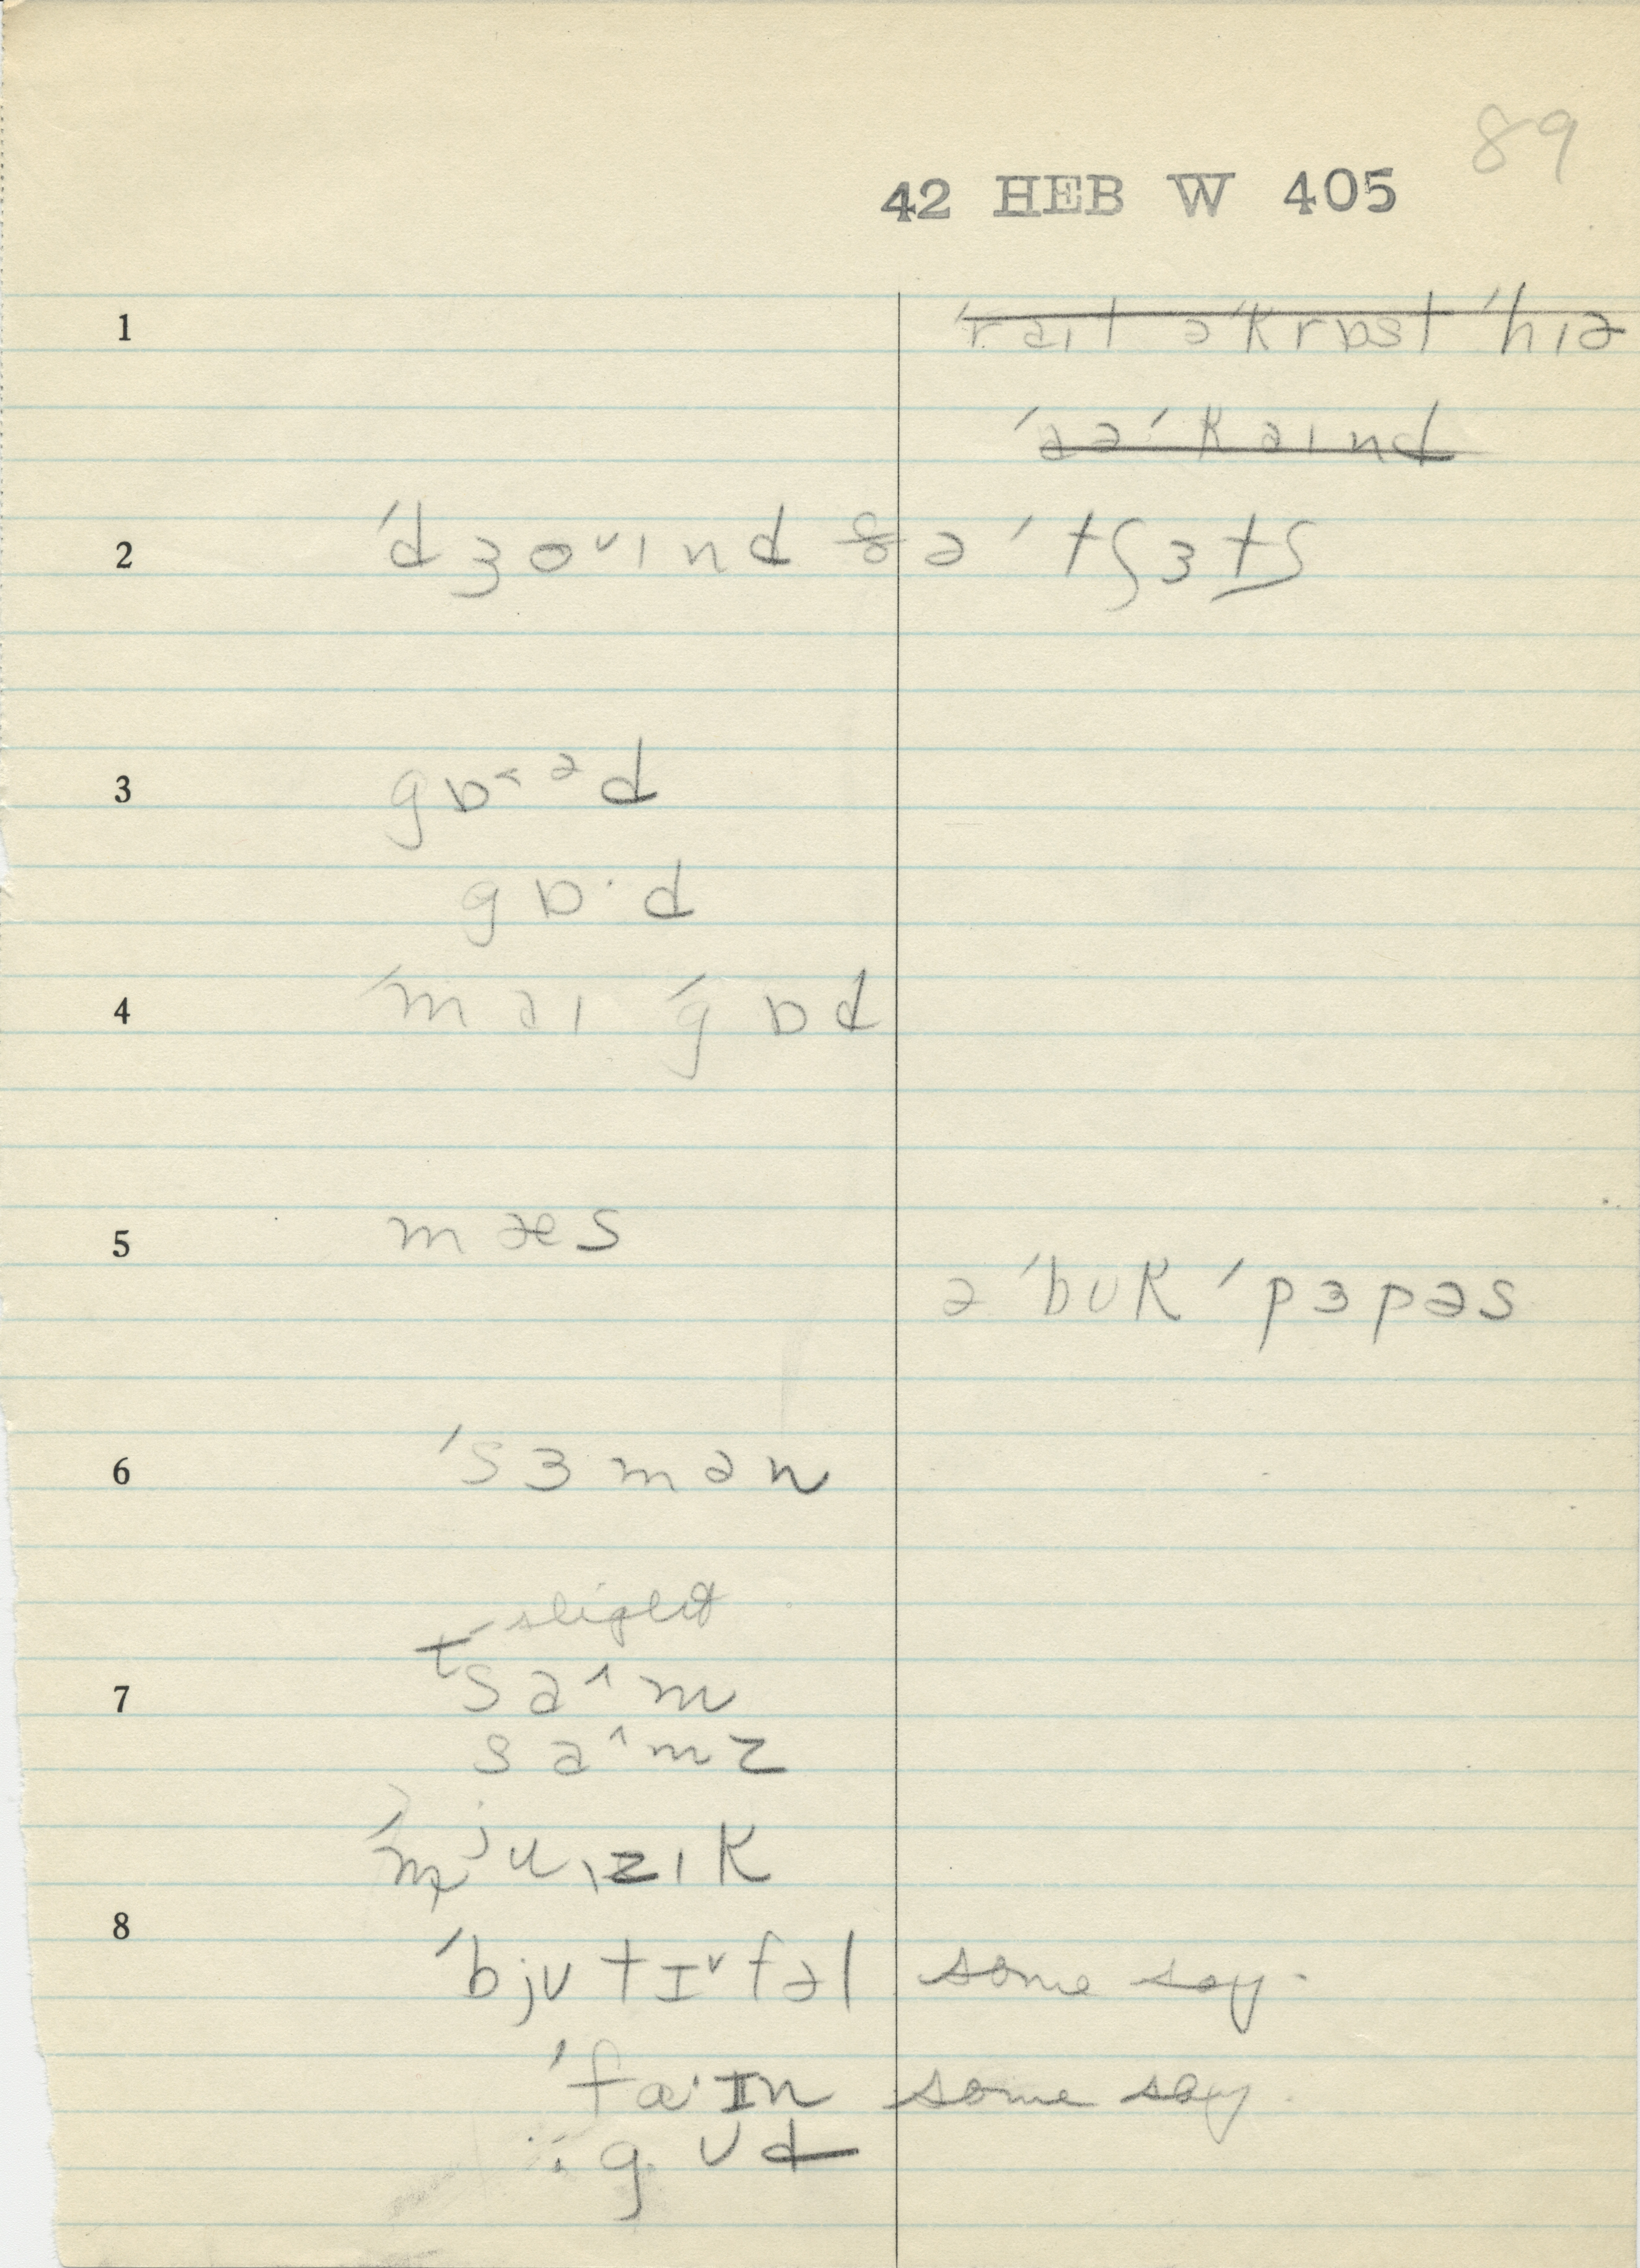 89
42 HEB W 405
1 ˈraɪt əˈkrɒst ˈhɪə
ˈaəˈkaɪnd
2 ˈdʒoᵛɪnd ðə ˈtʃɜtʃ
3 gɒ˂ᵊd
gɒ·d
4 ˈmaɪ ˈgɒd
5 mæs
ə ˈbʊk ˈpɜpəs
6 ˈsɜmən
slight
7 ᵗsa˄m
sa˄mz
ˈmʲuɪzɪk
8 ˈbjʊtɪ˅fəl some say.
ˈfa·ɪn some say.
gʊd